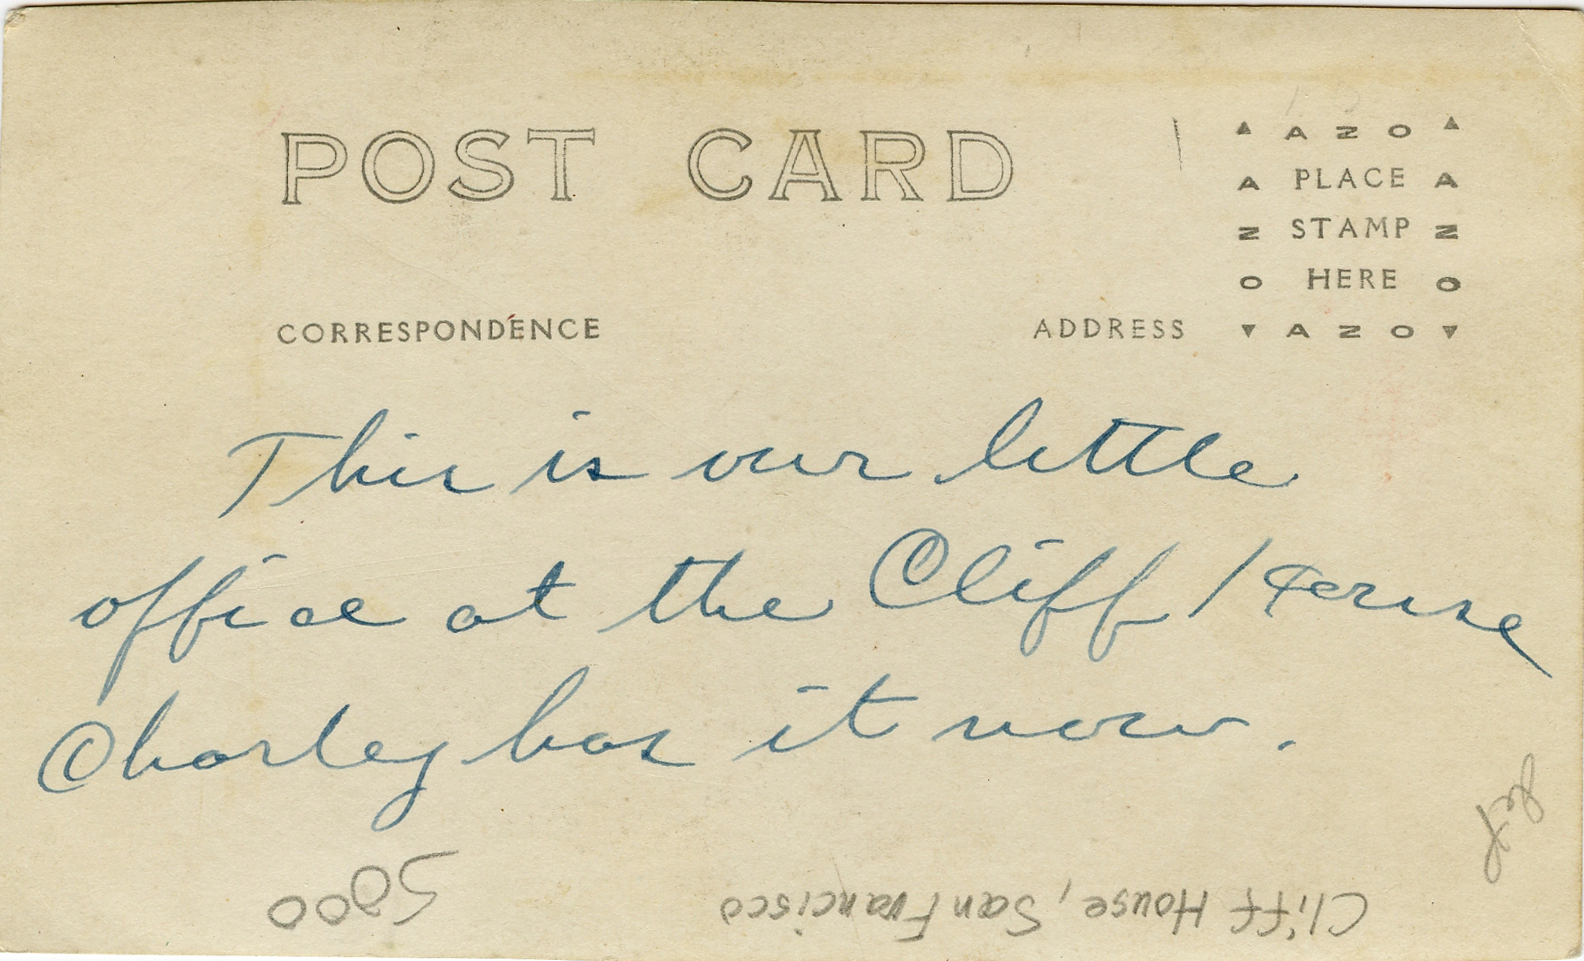 POST CARD
▲ A Z O ▲
A PLACE A
Z STAMP Z
O HERE O
▼ A Z O ▼
CORRESPONDENCE
ADDRESS
This is our little
office at the Cliff House
Charley has it now.
5000
Cliff House, San Francisco